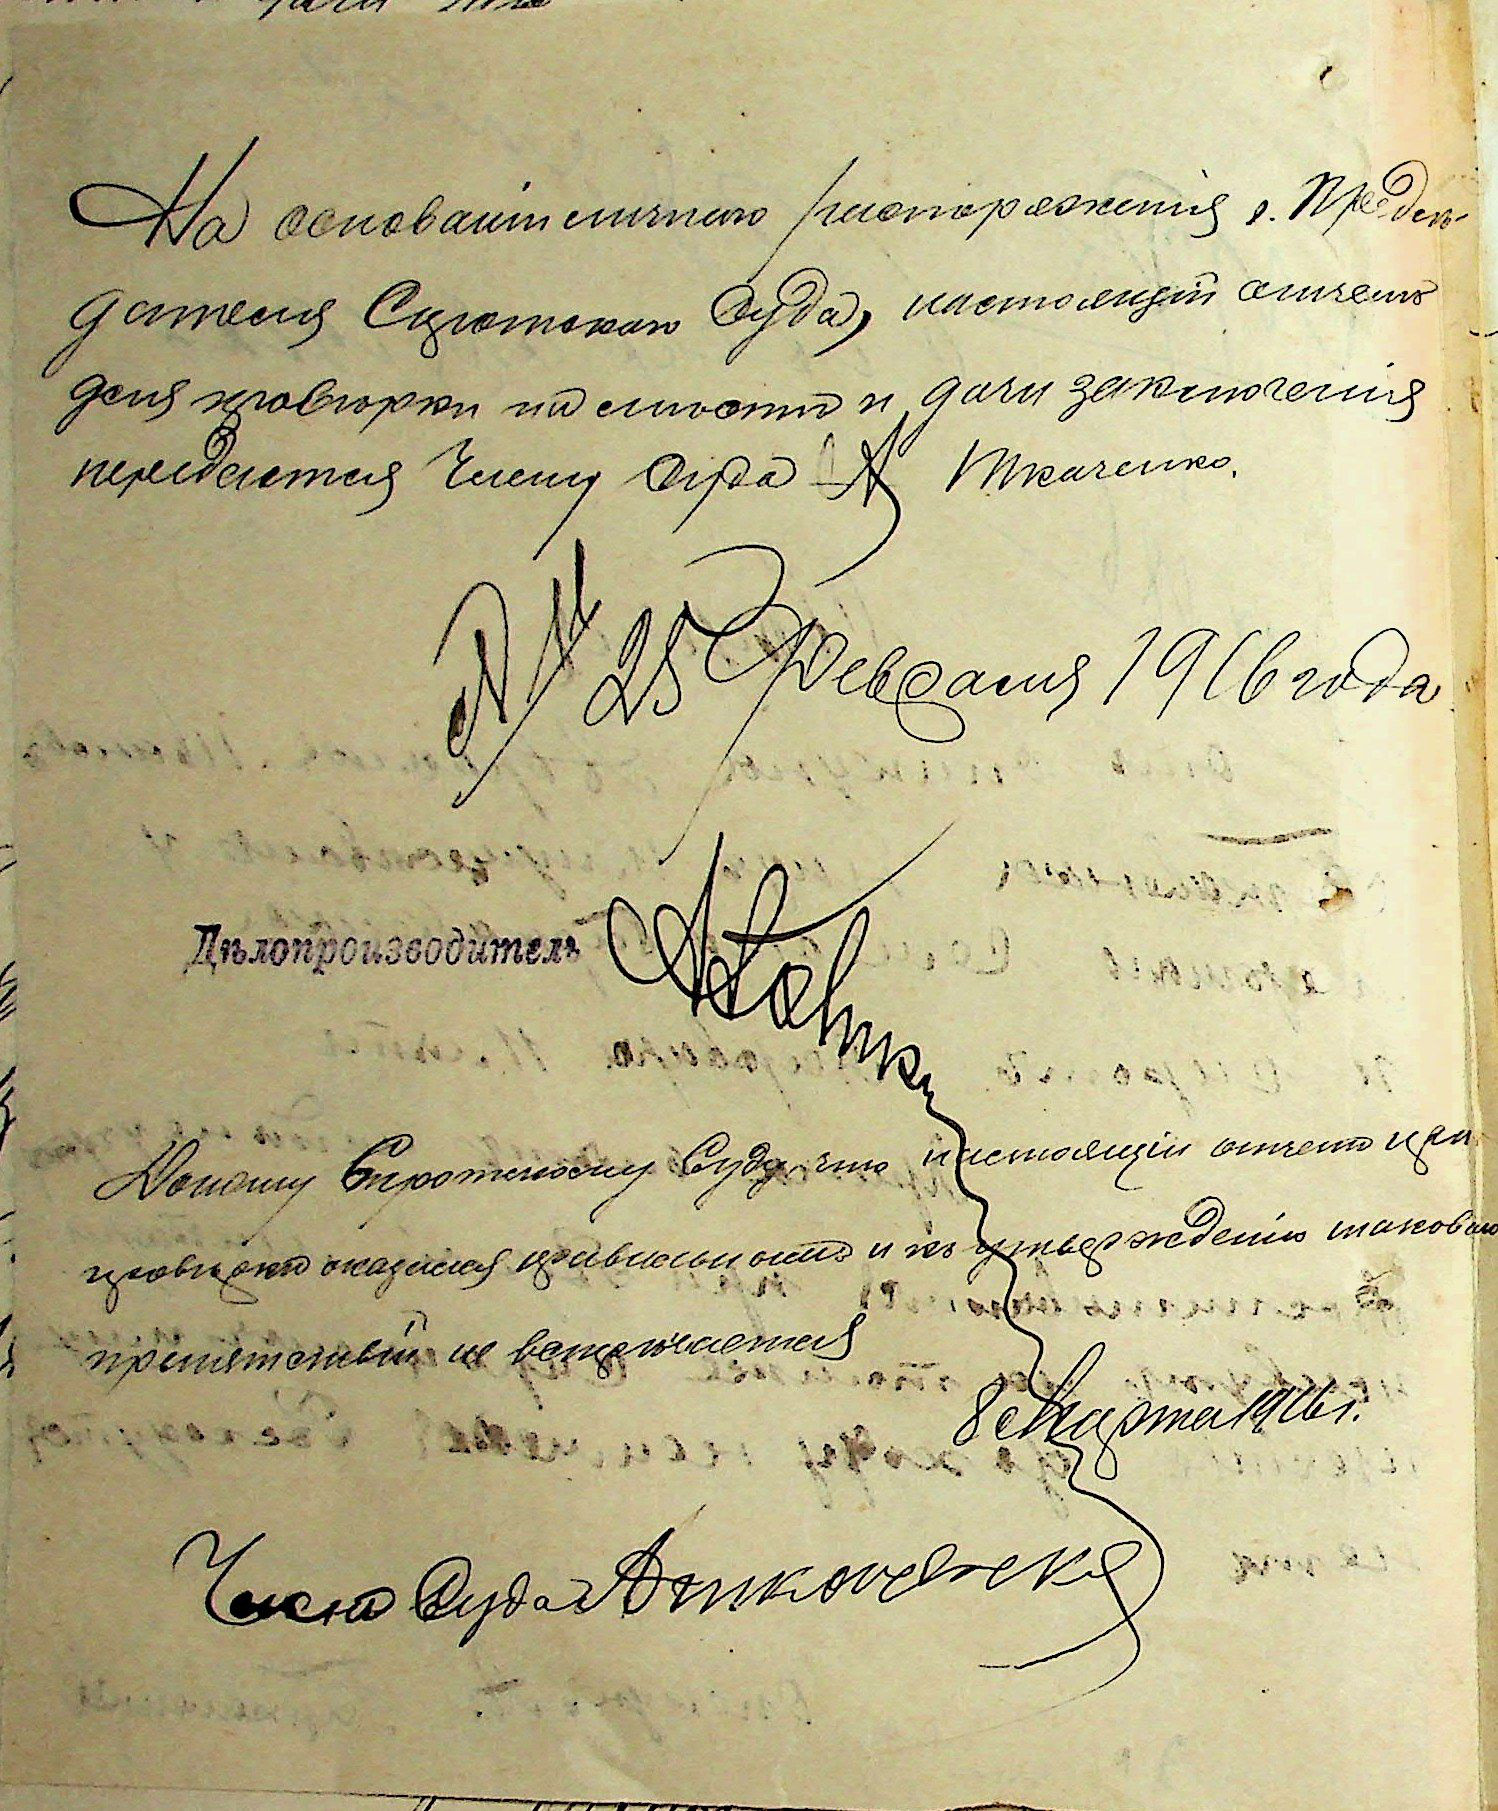 На основаніи личнаго распоряженія г. Предсѣ-
дателя Сиротскаго Суда, настоящій отчетъ
для провѣрки на мѣстѣ и дачи заключенія
передается Члену Суда А Ткаченко.
25 Февраля 1916 года
Дѣлопроизводитель
Доношу Сиротскому Суду, что настоящій отчетъ при
провѣркѣ оказался правильнымъ и къ утвержденію таковаго
препятствій не встрѣчается
8 Марта 1916 г.
Членъ Суда